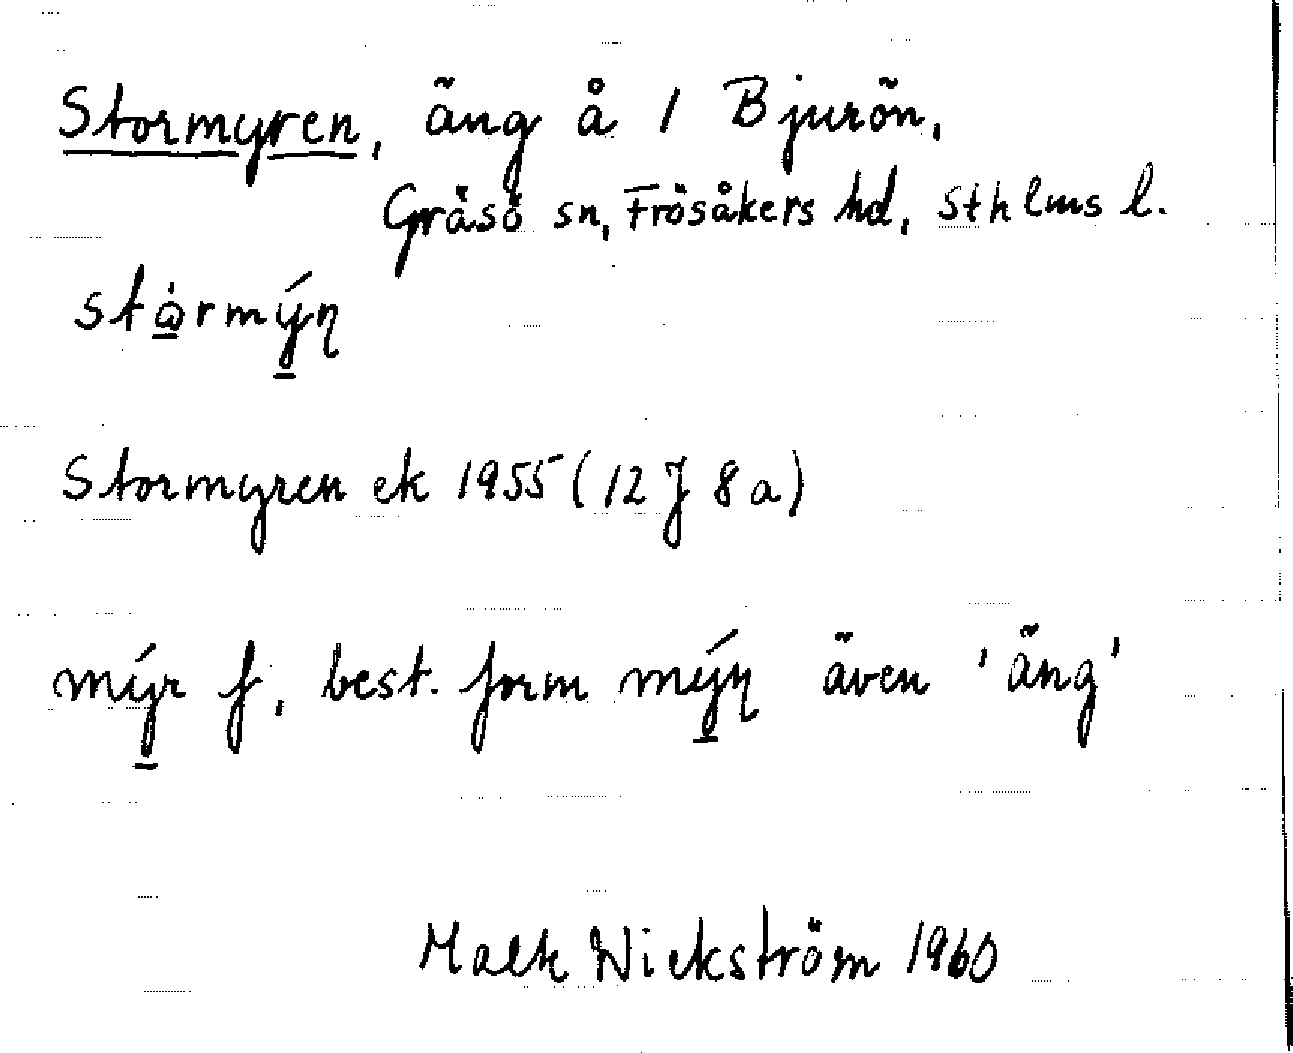 Stormyren, äng å 1 Bjurön,
Gräsö sn, Frösåkers hd, Sthlms l.
Stormyren ek 1955 (12 J 8 a)
mýr f, best. form mýn även 'äng'
Wickström 1960